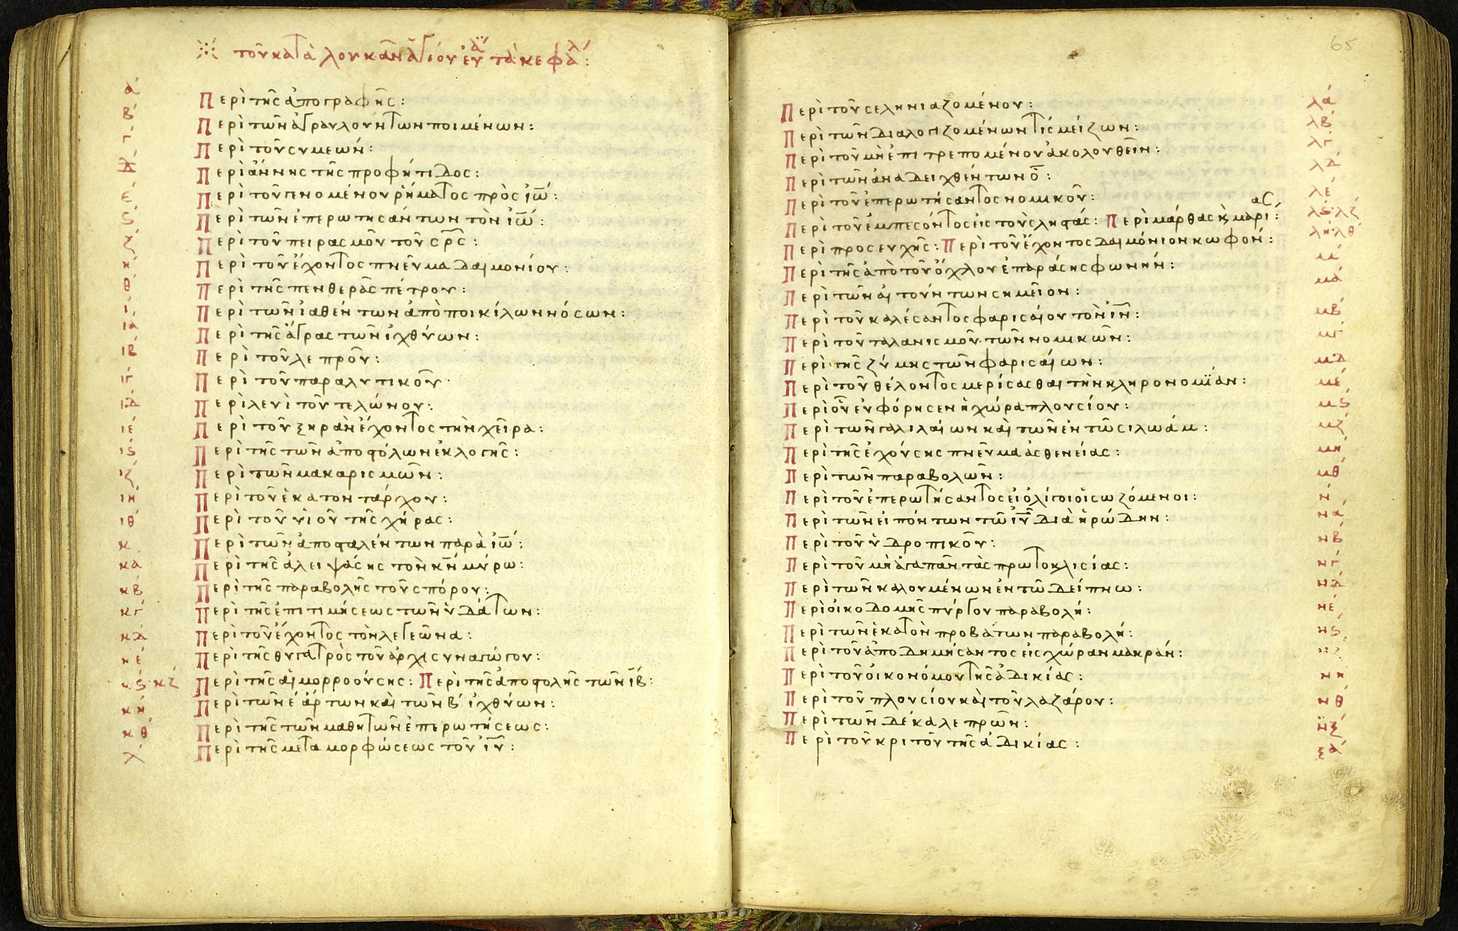 τοῦ κατὰ λουκᾶν ἁγίου εὐα τὰ κεφαλ:
α Περὶ τῆς ἀπογραφῆς:
β Περὶ τῶν ἀγραυλούντων ποιμένων:
γ Περὶ τοῦ συμεών:
δ Περὶ ἄννης τῆς προφήτιδος:
ε Περὶ τοῦ γενομένου ῥήματος πρὸς ἰω:
ς Περὶ τῶν ἐπερωτησάντων τὸν ἰω:
ζ Περὶ τοῦ πειρασμοῦ τοῦ σρς:
η Περὶ τοῦ ἔχοντος πνεῦμα δαιμονίου:
θ Περὶ τῆς πενθερᾶς πέτρου:
ι Περὶ τῶν ἰαθέντων ἀπὸ ποικίλων νόσων:
ια Περὶ τῆς ἄγρας τῶν ἰχθύων:
ιβ Περὶ τοῦ λεπροῦ:
ιγ Περὶ τοῦ παραλυτικοῦ
ιδ Περὶ λευὶ τοῦ τελώνου:
ιε Περὶ τοῦ ξηρὰν ἔχοντος τὴν χεῖρα:
ις Περὶ τῆς τῶν ἀποστόλων ἐκλογῆς:
ιζ Περὶ τῶν μακαρισμῶν:
ιη Περὶ τοῦ ἑκατοντάρχου:
ιθ Περὶ τοῦ υἱοῦ τῆς χήρας:
κ Περὶ τῶν ἀποσταλέντων παρὰ ἰω:
κα Περὶ τῆς ἀλειψάσης τὸν κν μύρω:
κβ Περὶ τῆς παραβολῆς τοῦ σπόρου:
κγ Περὶ τῆς ἐπιτιμήσεως τῶν ὑδάτων:
κδ Περὶ τοῦ ἔχοντος τὸν λεγεῶνα:
κε Περὶ τῆς θυγατρὸς τοῦ ἀρχισυναγώγου:
κς κζ Περὶ τῆς αἱμορροούσης: Περὶ τῆς ἀποστολῆς τῶν ιβ:
κη Περὶ τῶν ε ἄρτων καὶ τῶν β ἰχθύων:
κθ Περὶ τῆς τῶν μαθητῶν ἐπερωτήσεως:
λ Περὶ τῆς μεταμορφώσεως τοῦ ἰυ:
65
Περὶ τοῦ σεληνιαζομένου: λα
Περὶ τῶν διαλογιζομένων τίς μείζων: λβ
Περὶ τοῦ μὴ ἐπιτρεπομένου ἀκολουθεῖν: λγ
Περὶ τῶν ἀναδειχθέντων ο: λδ
Περὶ τοῦ ἐπερωτήσαντος νομικοῦ: λε
Περὶ τοῦ ἐμπεσόντος εἰς τοὺς ληστάς: Περὶ μάρθας κ μαρίας: λς λζ
Περὶ προσευχῆς: Περὶ τοῦ ἔχοντος δαιμόνιον κωφόν: λη λθ
Περὶ τῆς ἀπὸ τοῦ ὄχλου ἐπαράσης φωνήν: μ
Περὶ τῶν αἰτούντων σημεῖον: μα
Περὶ τοῦ καλέσαντος φαρισαίου τὸν ἰν: μβ
Περὶ τοῦ ταλανισμοῦ τῶν νομικῶν: μγ
Περὶ τῆς ζύμης τῶν φαρισαίων: μδ
Περὶ τοῦ θέλοντος μερίσασθαι τὴν κληρονομίαν: με
Περὶ οὗ εὐφόρησεν ἡ χώρα πλουσίου: μς
Περὶ τῶν γαλιλαίων καὶ τῶν ἐν τῶ σιλωάμ: μζ
Περὶ τῆς ἐχούσης πνεῦμα ἀσθενείας: μη
Περὶ τῶν παραβολῶν: μθ
Περὶ τοῦ ἐπερωτήσαντος εἰ ὀλίγοι οἱ σωζόμενοι: ν
Περὶ τῶν εἰπόντων τῶ ἰυ διὰ ἡρώδην: να
Περὶ τοῦ ὑδροπικοῦ: νβ
Περὶ τοῦ μὴ ἀγαπᾶν τὰς πρωτοκλισίας: νγ
Περὶ τῶν καλουμένων ἐν τῶ δείπνω: νδ
Περὶ οἰκοδομῆς πύργου παραβολή: νε
Περὶ τῶν ἑκατὸν προβάτων παραβολή: νς
Περὶ τοῦ ἀποδημήσαντος εἰς χώραν μακράν:
Περὶ τοῦ οἰκονόμου τῆς ἀδικίας: νη
Περὶ τοῦ πλουσίου καὶ τοῦ λαζάρου: νθ
Περὶ τῶν δέκα λεπρῶν: ξ
Περὶ τοῦ κριτοῦ τῆς ἀδικίας: ξα